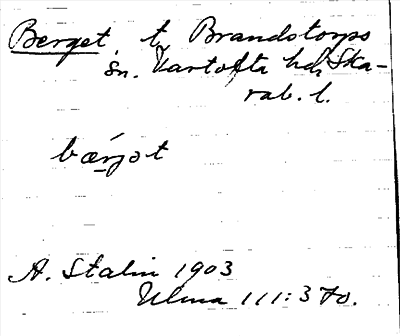 Berget, t, Brandstorps
sn. Vartofta hd, Ska-
rab. l.
bærjət
A. Stalin 1903
Ulma 111:370.